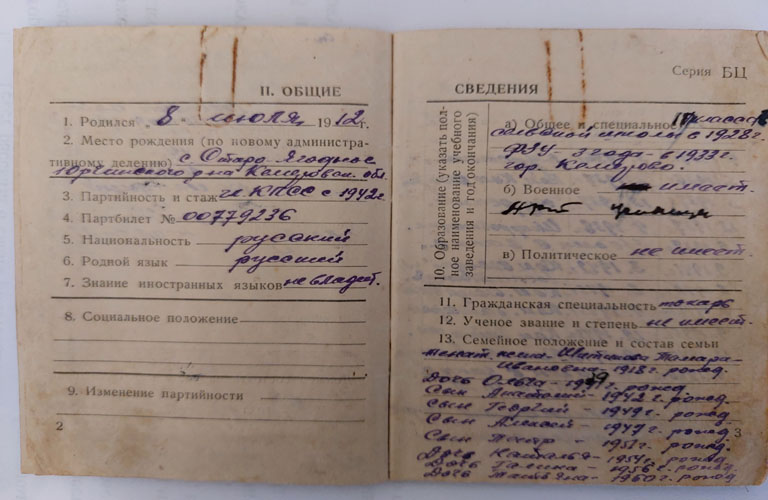 II. ОБЩИЕ
1. Родился 8 июля 1912г.
2. Место рождения (по новому административному делению) с Старо Ягодное
Юргинского р-на Кемеровской обл.
3. Партийность и стаж чл. КПСС с 1942г.
4. Партбилет № 00779236
5. Национальность русский
6. Родной язык русский
7. Знание иностранных языков не владеет.
8. Социальное положение
9. Изменение партийности
2
Серия БЦ
СВЕДЕНИЯ
10. Образование (указать полное наименование учебного заведения и год окончания)
а) Общее и специальное классов
школы в 1928г.
ФЗУ - 3 года - в 1933г.
гор. Кемерово.
б) Военное имеет.
в) Политическое не имеет.
11. Гражданская специальность токарь
12. Ученое звание и степень не имеет.
13. Семейное положение и состав семьи
женат. жена - Тамара
Ивановна 1918г. рожд.
Дочь Ольга - рожд.
Сын Анатолий - 1942г. рожд.
Сын Георгий - 1949г. рожд.
Сын Алексей - 1947г. рожд.
Сын Петр - 1951г. рожд.
3
Дочь Наталья - 1954г. рожд.
Дочь Галина - 1956г. рожд.
Дочь Татьяна - 1960г. рожд.